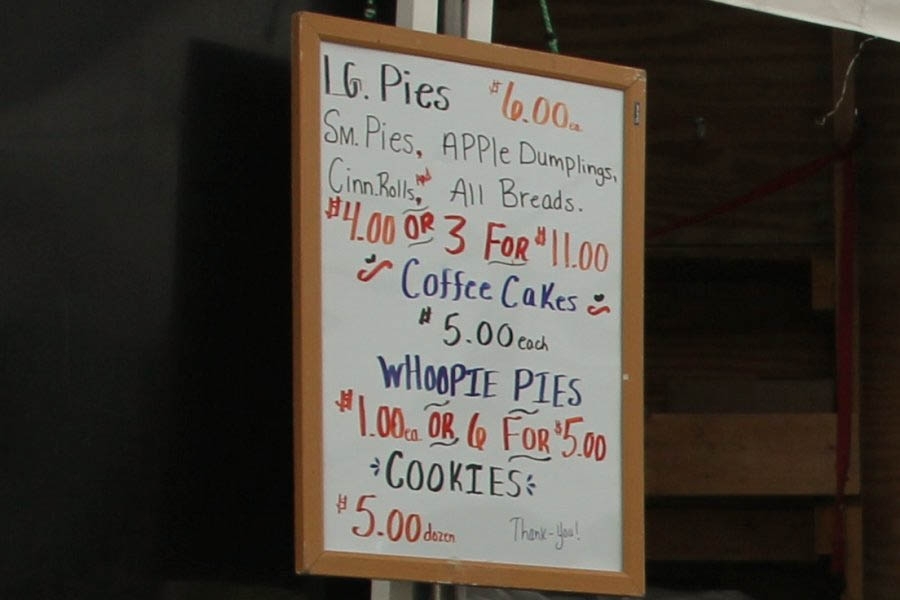 LG. Pies $6.00 ea
Sm. Pies, APPle Dumplings,
Cinn.Rolls, All Breads.
$4.00 OR 3 FOR $11.00
Coffee Cakes
$5.00 each
WHOOPIE PIES
$1.00 ea. OR 6 FOR $5.00
COOKIES
$5.00 dozen Thank-you!